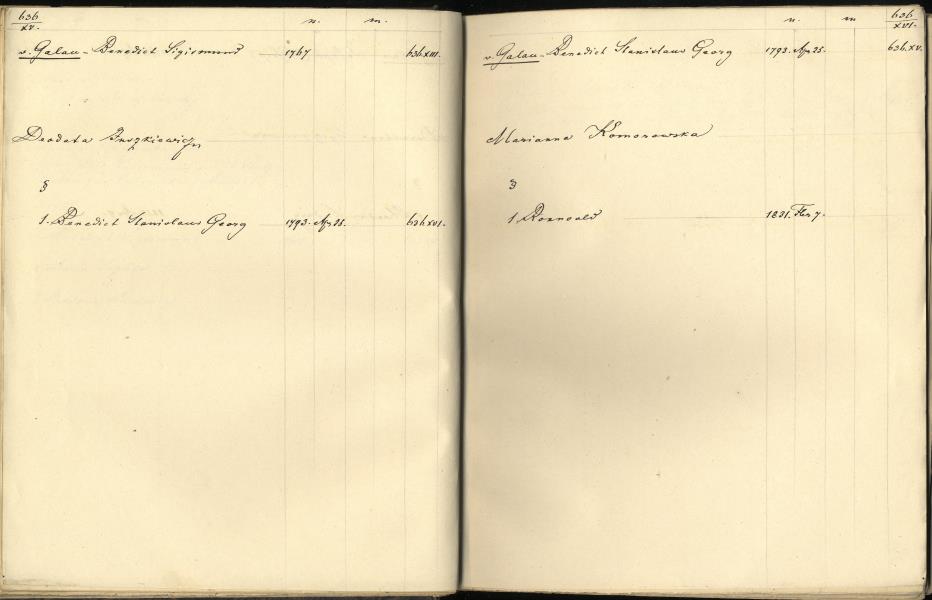 636
XV.
n. m.
v. Galau - Benedict Sigismund 1767 636 XIII.
Deodata
§
1. Benedict Stanislaus Georg 1793. Apr 25. 636 XVI.
636
XVI.
n. m
v. Galau - Benedict Stanislaus Georg 1793. Apr 25. 636. XV.
Marianna Komorowska
§
1 Romuald 1831. Febr 7.